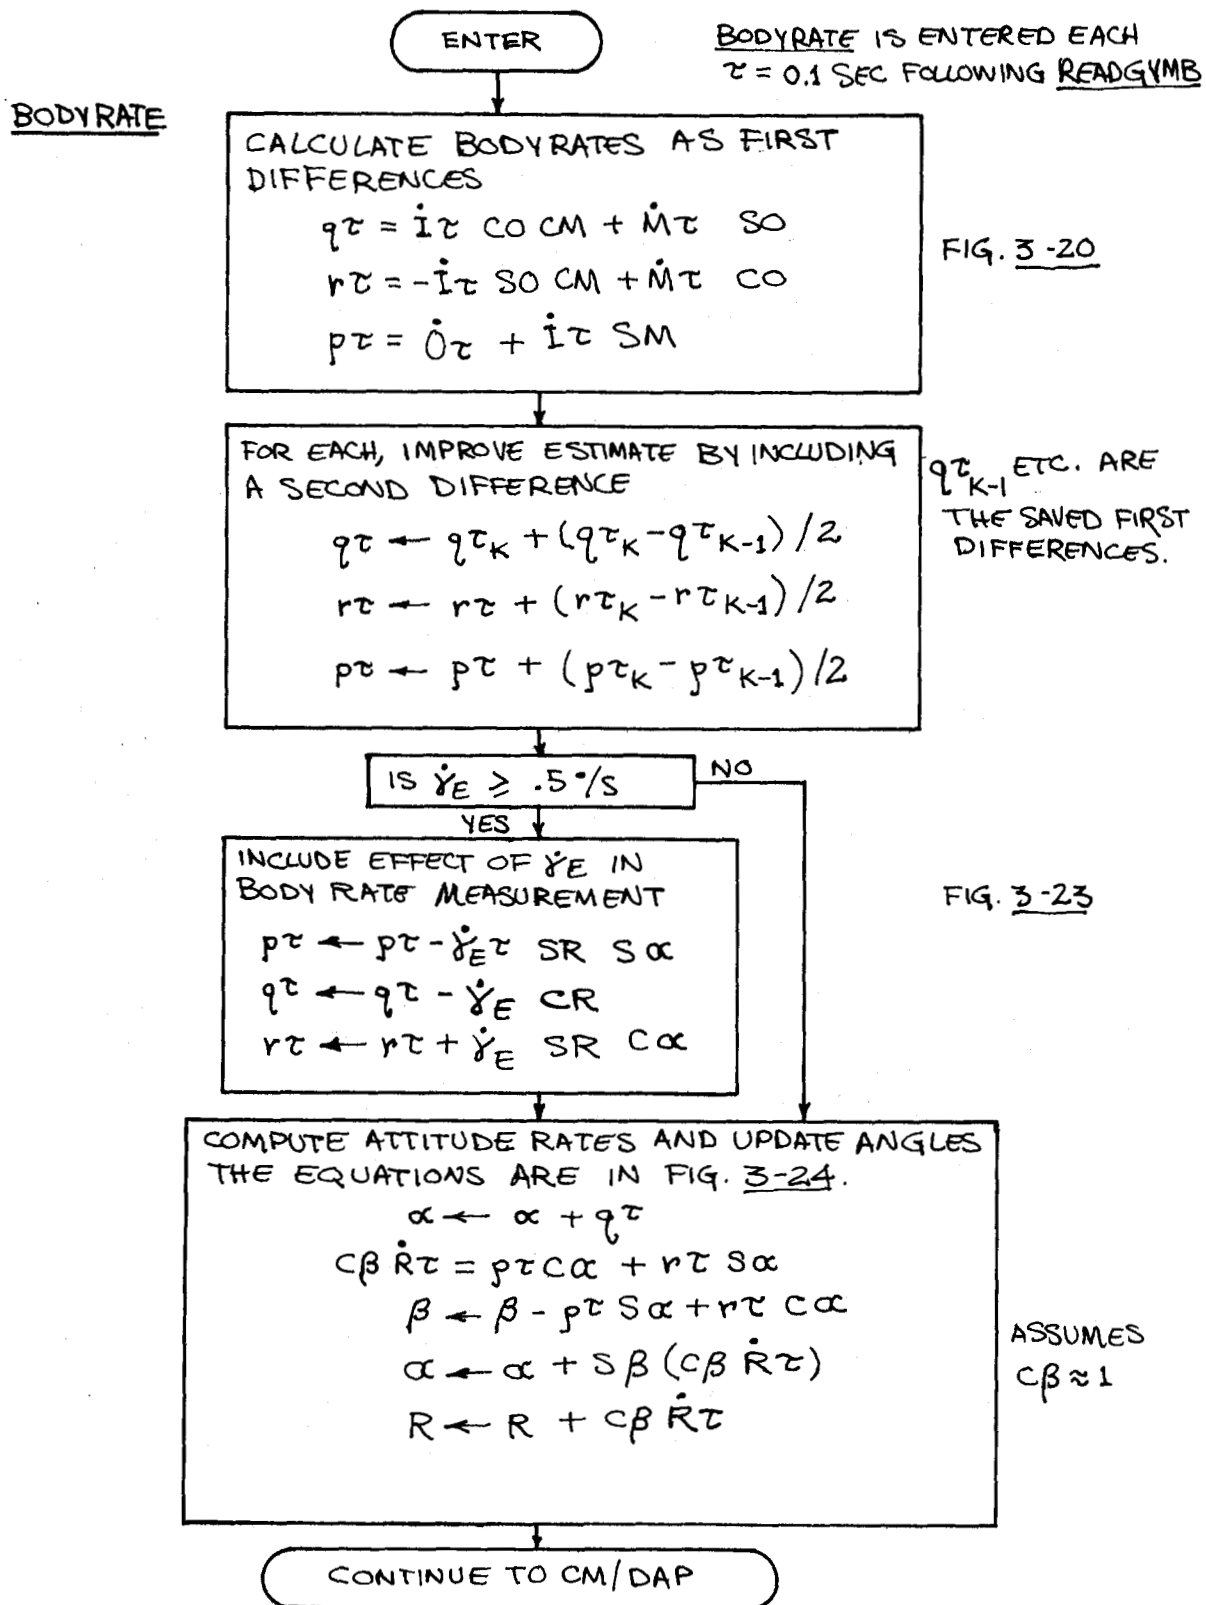 ENTER
BODYRATE IS ENTERED EACH
τ = 0.1 SEC FOLLOWING READGYMB
BODYRATE
CALCULATE BODYRATES AS FIRST
DIFFERENCES
qτ = İτ CO CM + Ṁτ SO
rτ = -İτ SO CM + Ṁτ CO
pτ = Ȯτ + İτ SM
FIG. 3-20
FOR EACH, IMPROVE ESTIMATE BY INCLUDING
A SECOND DIFFERENCE
qτ ← qτ_K + (qτ_K - qτ_K-1) /2
rτ ← rτ + (rτ_K - rτ_K-1) /2
pτ ← pτ + (pτ_K - pτ_K-1) /2
qτ_K-1 ETC. ARE
THE SAVED FIRST
DIFFERENCES.
IS γ̇_E ≥ .5°/S
NO
YES
INCLUDE EFFECT OF γ̇_E IN
BODY RATE MEASUREMENT
pτ ← pτ - γ̇_E τ SR Sα
qτ ← qτ - γ̇_E CR
rτ ← rτ + γ̇_E SR Cα
FIG. 3-23
COMPUTE ATTITUDE RATES AND UPDATE ANGLES
THE EQUATIONS ARE IN FIG. 3-24.
α ← α + qτ
Cβ Ṙτ = pτ Cα + rτ Sα
β ← β - pτ Sα + rτ Cα
α ← α + Sβ (Cβ Ṙτ)
R ← R + Cβ Ṙτ
ASSUMES
Cβ ≈ 1
CONTINUE TO CM/DAP